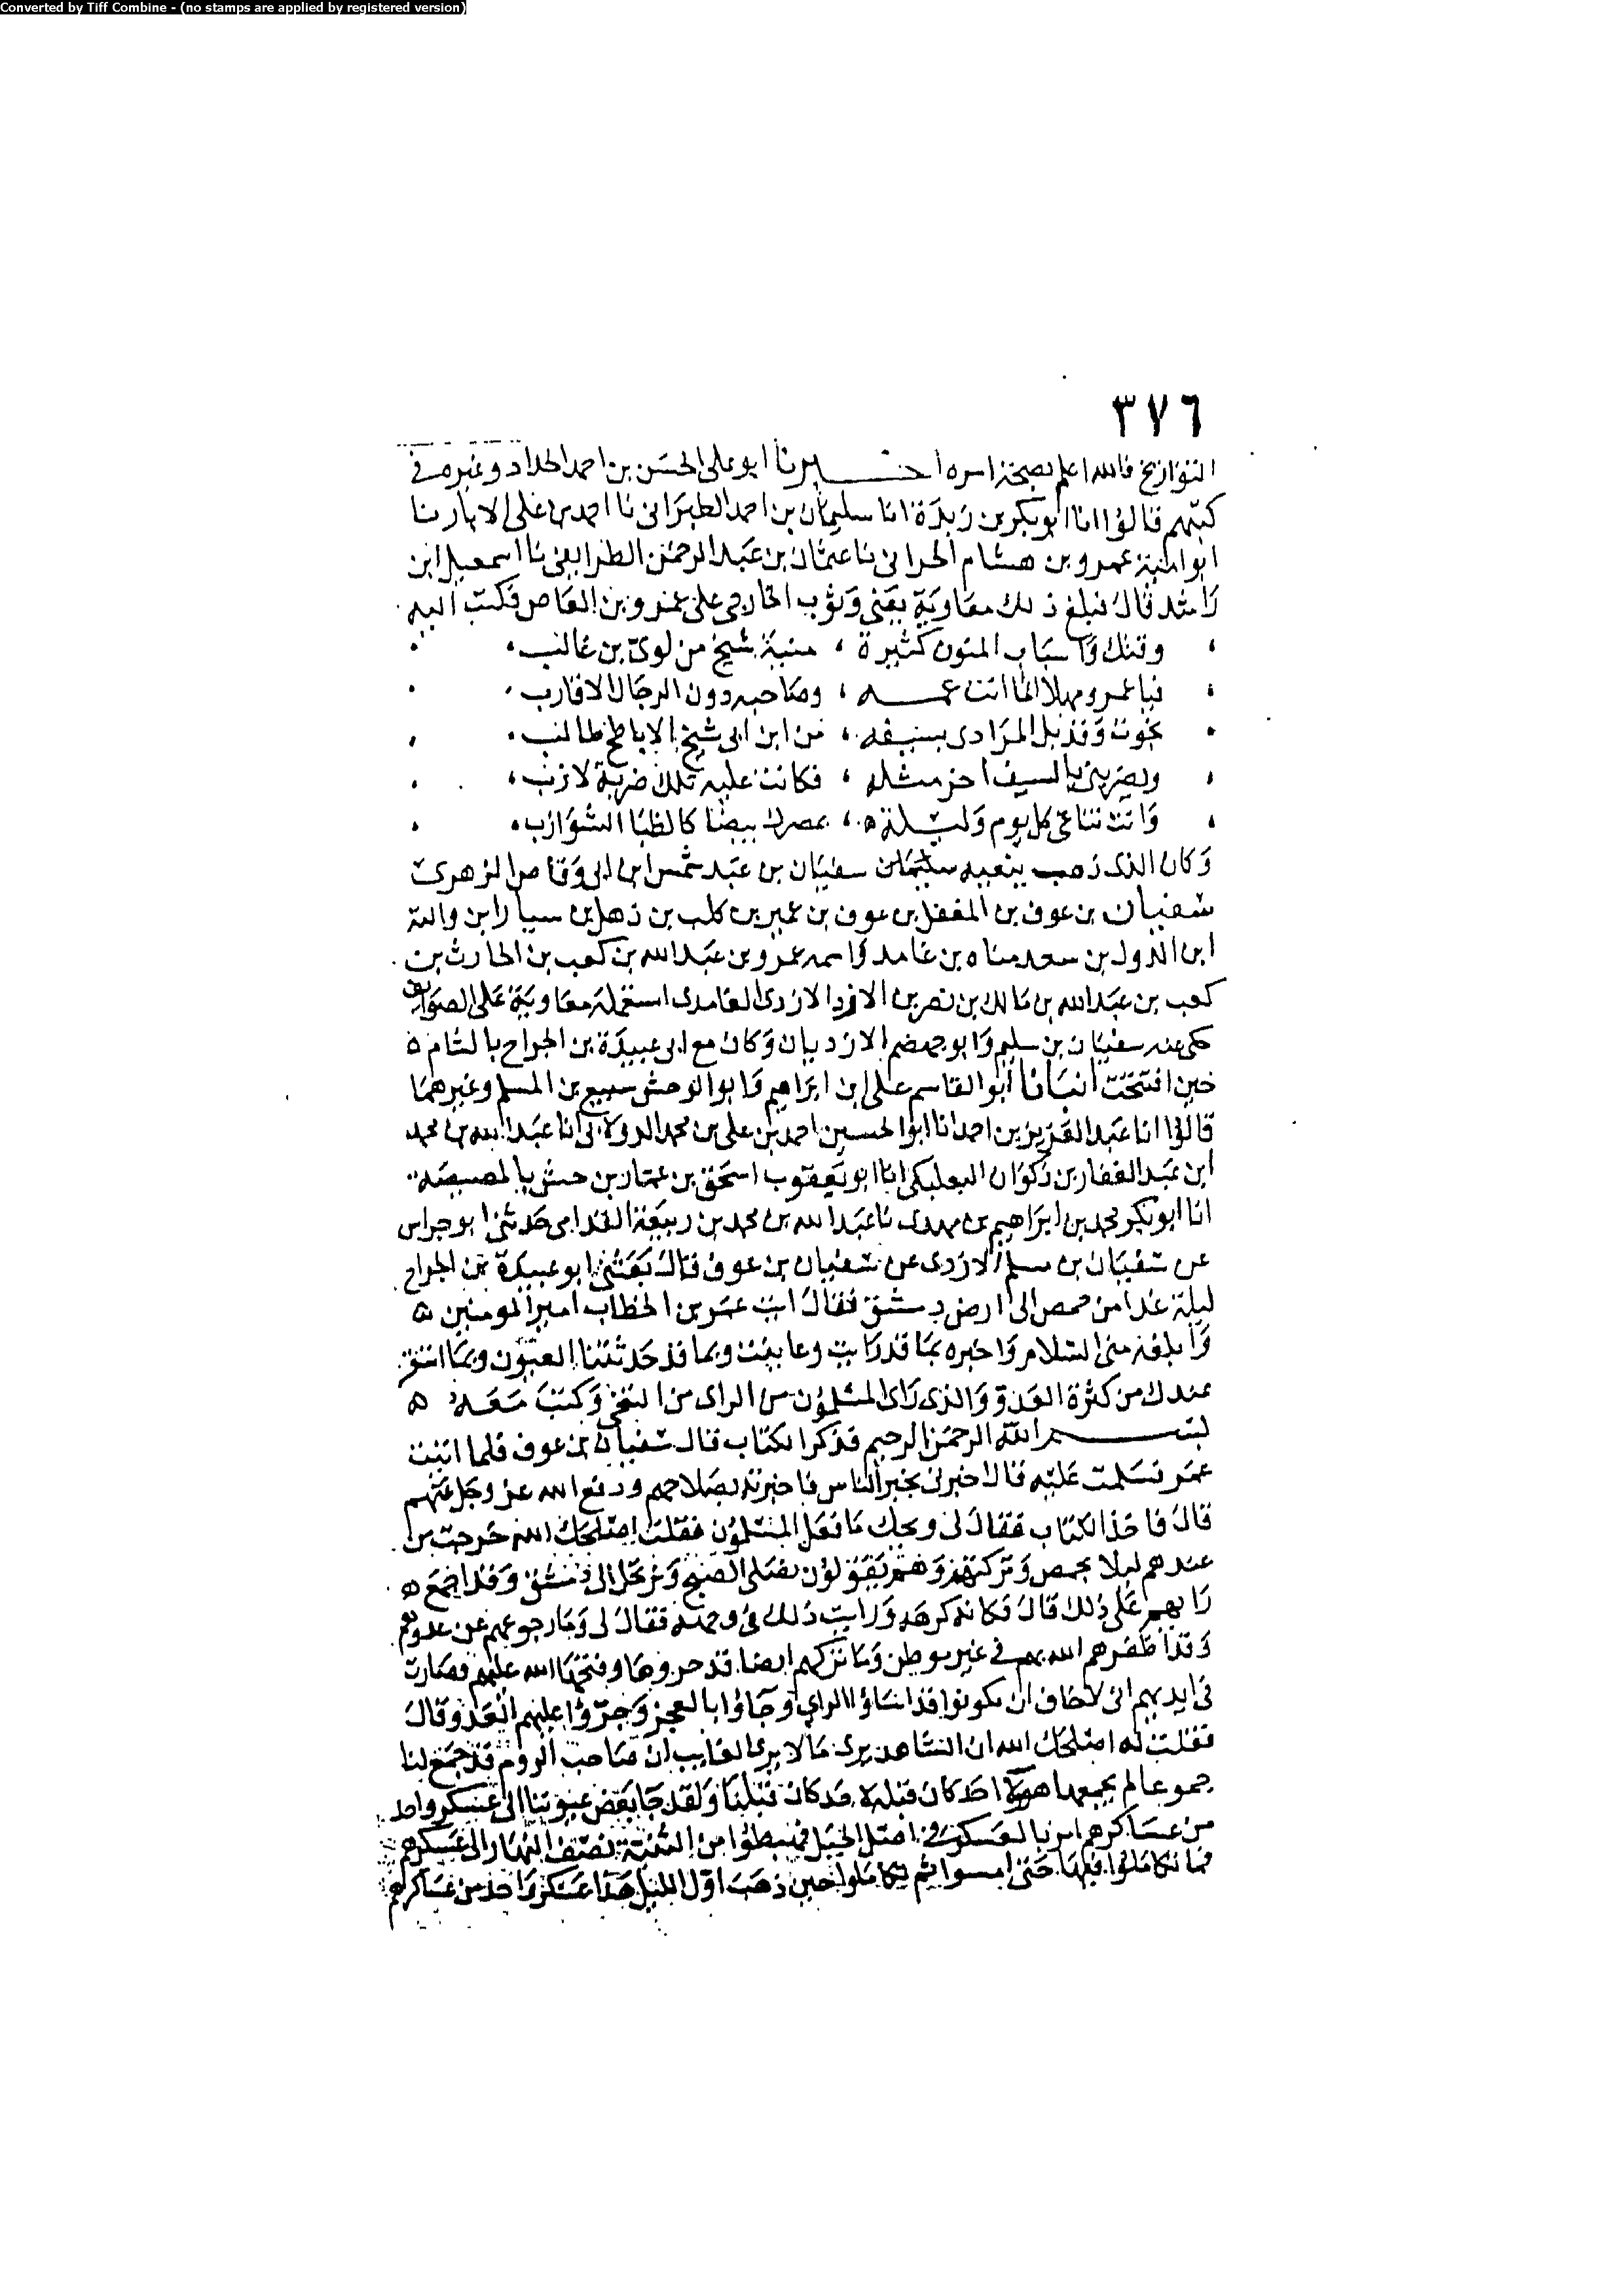 Converted by Tiff Combine - (no stamps are applied by registered version)
٣٧٦
التواريخ فالله اعلم بصحة اسره اخبرنا ابو على الحسن بن احمد الحداد وغيره في
كتبهم قالوا انا ابو بكر بن ربدة انا سليمان بن احمد الطبراني نا احمد بن على الابار نا
ابو امية عمرو بن هشام الحراني نا عثمان بن عبد الرحمن الطرايفي نا اسمعيل ابن
راشد قال فبلغ ذلك معاوية يعنى وثوب الخارجى على عمرو بن العاص فكتب اليه
وقتك واسباب المنون كثيرة ، منية شيخ من لوى بن غالب
فيا عمرو مهلا انما انت عمه ، وصاحبه دون الرجال الاقارب
نجوت وقد بل المرادى بسيفه ، من ابن ابى شيخ الاباطح طالب
ويضربنى بالسيف اخر مثله ، فكانت عليه تلك ضربة لازب
وانت تناغى كل يوم وليلة ، بمصرك بيضا كالظبا الشوازب
وكان الذى ذهب ببعيه سليمان سفيان بن عبد شمس ابن ابى وقاص الزهرى
سفيان بن عوف بن المغفل بن عوف بن عمير بن كلب بن ذهل بن سيار ابن والبة
ابن الدول بن سعد مناه بن غامد واسمه عمرو بن عبد الله بن كعب بن الحارث بن
كعب بن عبد الله بن مالك بن نصر بن الازد الازدى الغامدى استعمله معاوية على الصوايف
حكى عنه سفيان بن سليم وابو جهضم الازديان وكان مع ابى عبيدة بن الجراح بالشام ه
حين افتتحت انبانا ابو القاسم على ابن ابراهيم وابو الوحش سبيع بن المسلم وغيرهما
قالوا انا عبد العزيز بن احمد انا ابو الحسين احمد بن على بن محمد الدولابى انا عبد الله بن محمد
ابن عبد الغفار بن ذكوان البعلبكى انا ابو يعقوب اسحق بن عمار بن حبش بالمصيصة
انا ابو بكر محمد بن ابراهيم بن مهدى نا عبد الله بن محمد بن ربيعة القدامى حدثنى ابو حراس
عن سفيان بن سليم الازدى عن سفيان بن عوف قال بعثنى ابو عبيدة بن الجراح
ليلة غدا من حمص الى ارض دمشق فقال ايت عمر بن الخطاب امير المومنين ه
وابلغه منى السلام واخبره بما قد رايت وعاينت وبما قد حدثتنا العيون وبما استقر
عندك من كثرة العدو والذى راى المسلمون من الراى من التنحى وكتب معه ه
بسم الله الرحمن الرحيم فذكر الكتاب قال سفيان بن عوف فلما اتيت
عمر فسلمت عليه قال اخبرنى بخبر الناس فاخبرته بصلاحهم ودفع الله عز وجل عنهم
قال فاخذ الكتاب فقال لى ويحك ما فعل المسلمون فقلت اصلحك الله خرجت من
عندهم ليلا بحمص وتركتهم وهم يقولون نصلى الصبح ونرتحل الى دمشق وقد اجمع ه
رايهم على ذلك قال فكانه كرهه ورايت ذلك فى وجهه فقال لى وما رجوعهم عن عدوهم
وقد اظفرهم الله بهم في غير موطن وما تركهم ارضا قد حووها وفتحها الله عليهم فصارت
فى ايديهم انى لاخاف ان يكونوا قد اساؤا الراي وجاؤا بالعجز وجرؤا عليهم العدو قال
فقلت له اصلحك الله ان الشاهد يرى ما لا يرى الغايب ان صاحب الروم قد جمع لنا
جموعا لم يجمعها هو ولا احد كان قبله لاحد كان قبلنا ولقد جا بعض عيوننا الى عسكر واحد
من عساكرهم امر بالعسكر في اصل الجبل فهبطوا من الثنية نصف النهار الى عسكرهم
فما تكاملوا فيها حتى امسوا ثم تكاملوا حين ذهب اول الليل هذا عسكر واحد من عساكرهم